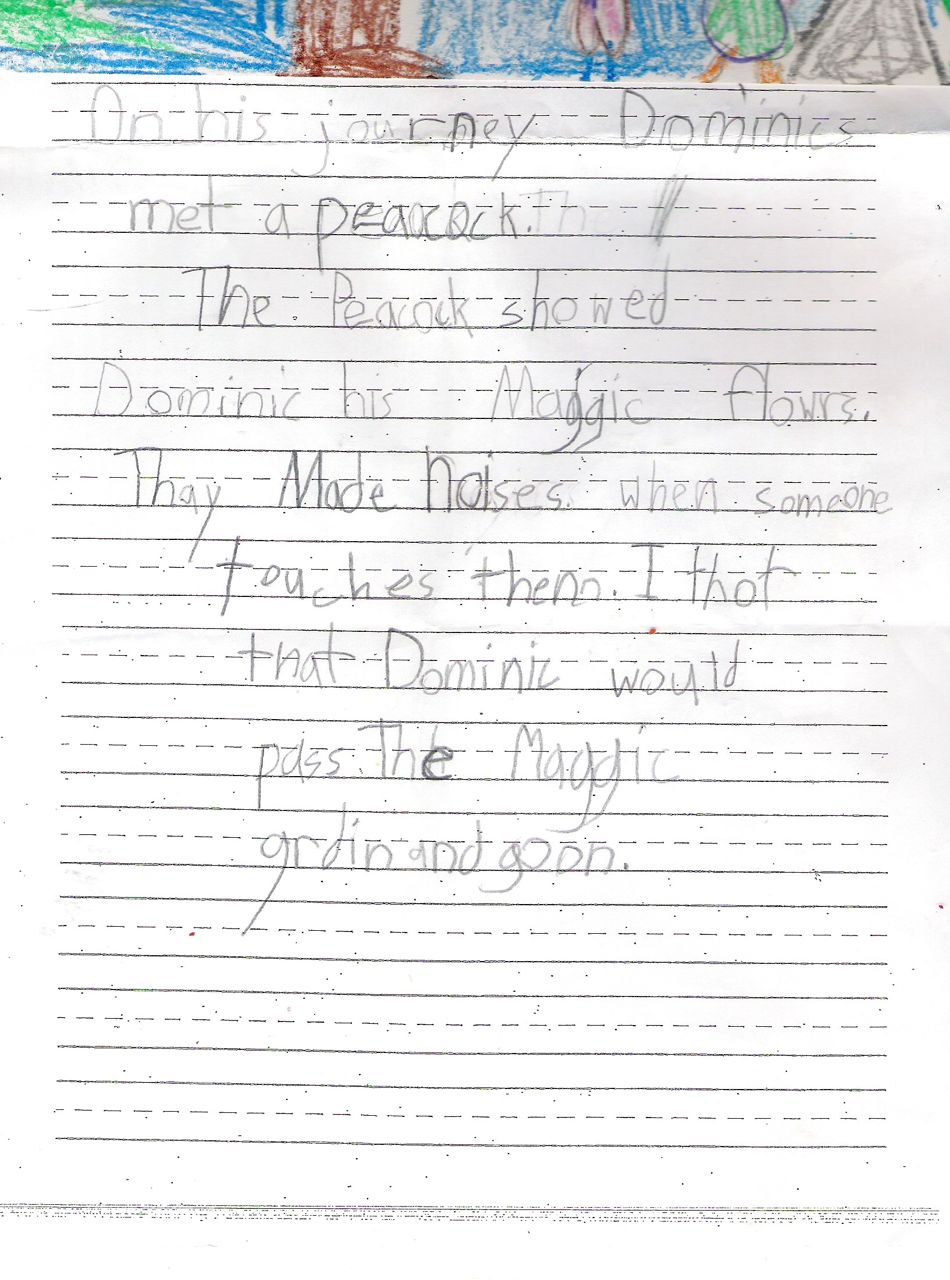 On his journey Dominics
met a peacock. The
The Peacock showed
Dominic his Maggic flowrs.
Thay Made noises when someone
touches them. I thot
that Dominic would
pass. The Maggic
grdin and goon.